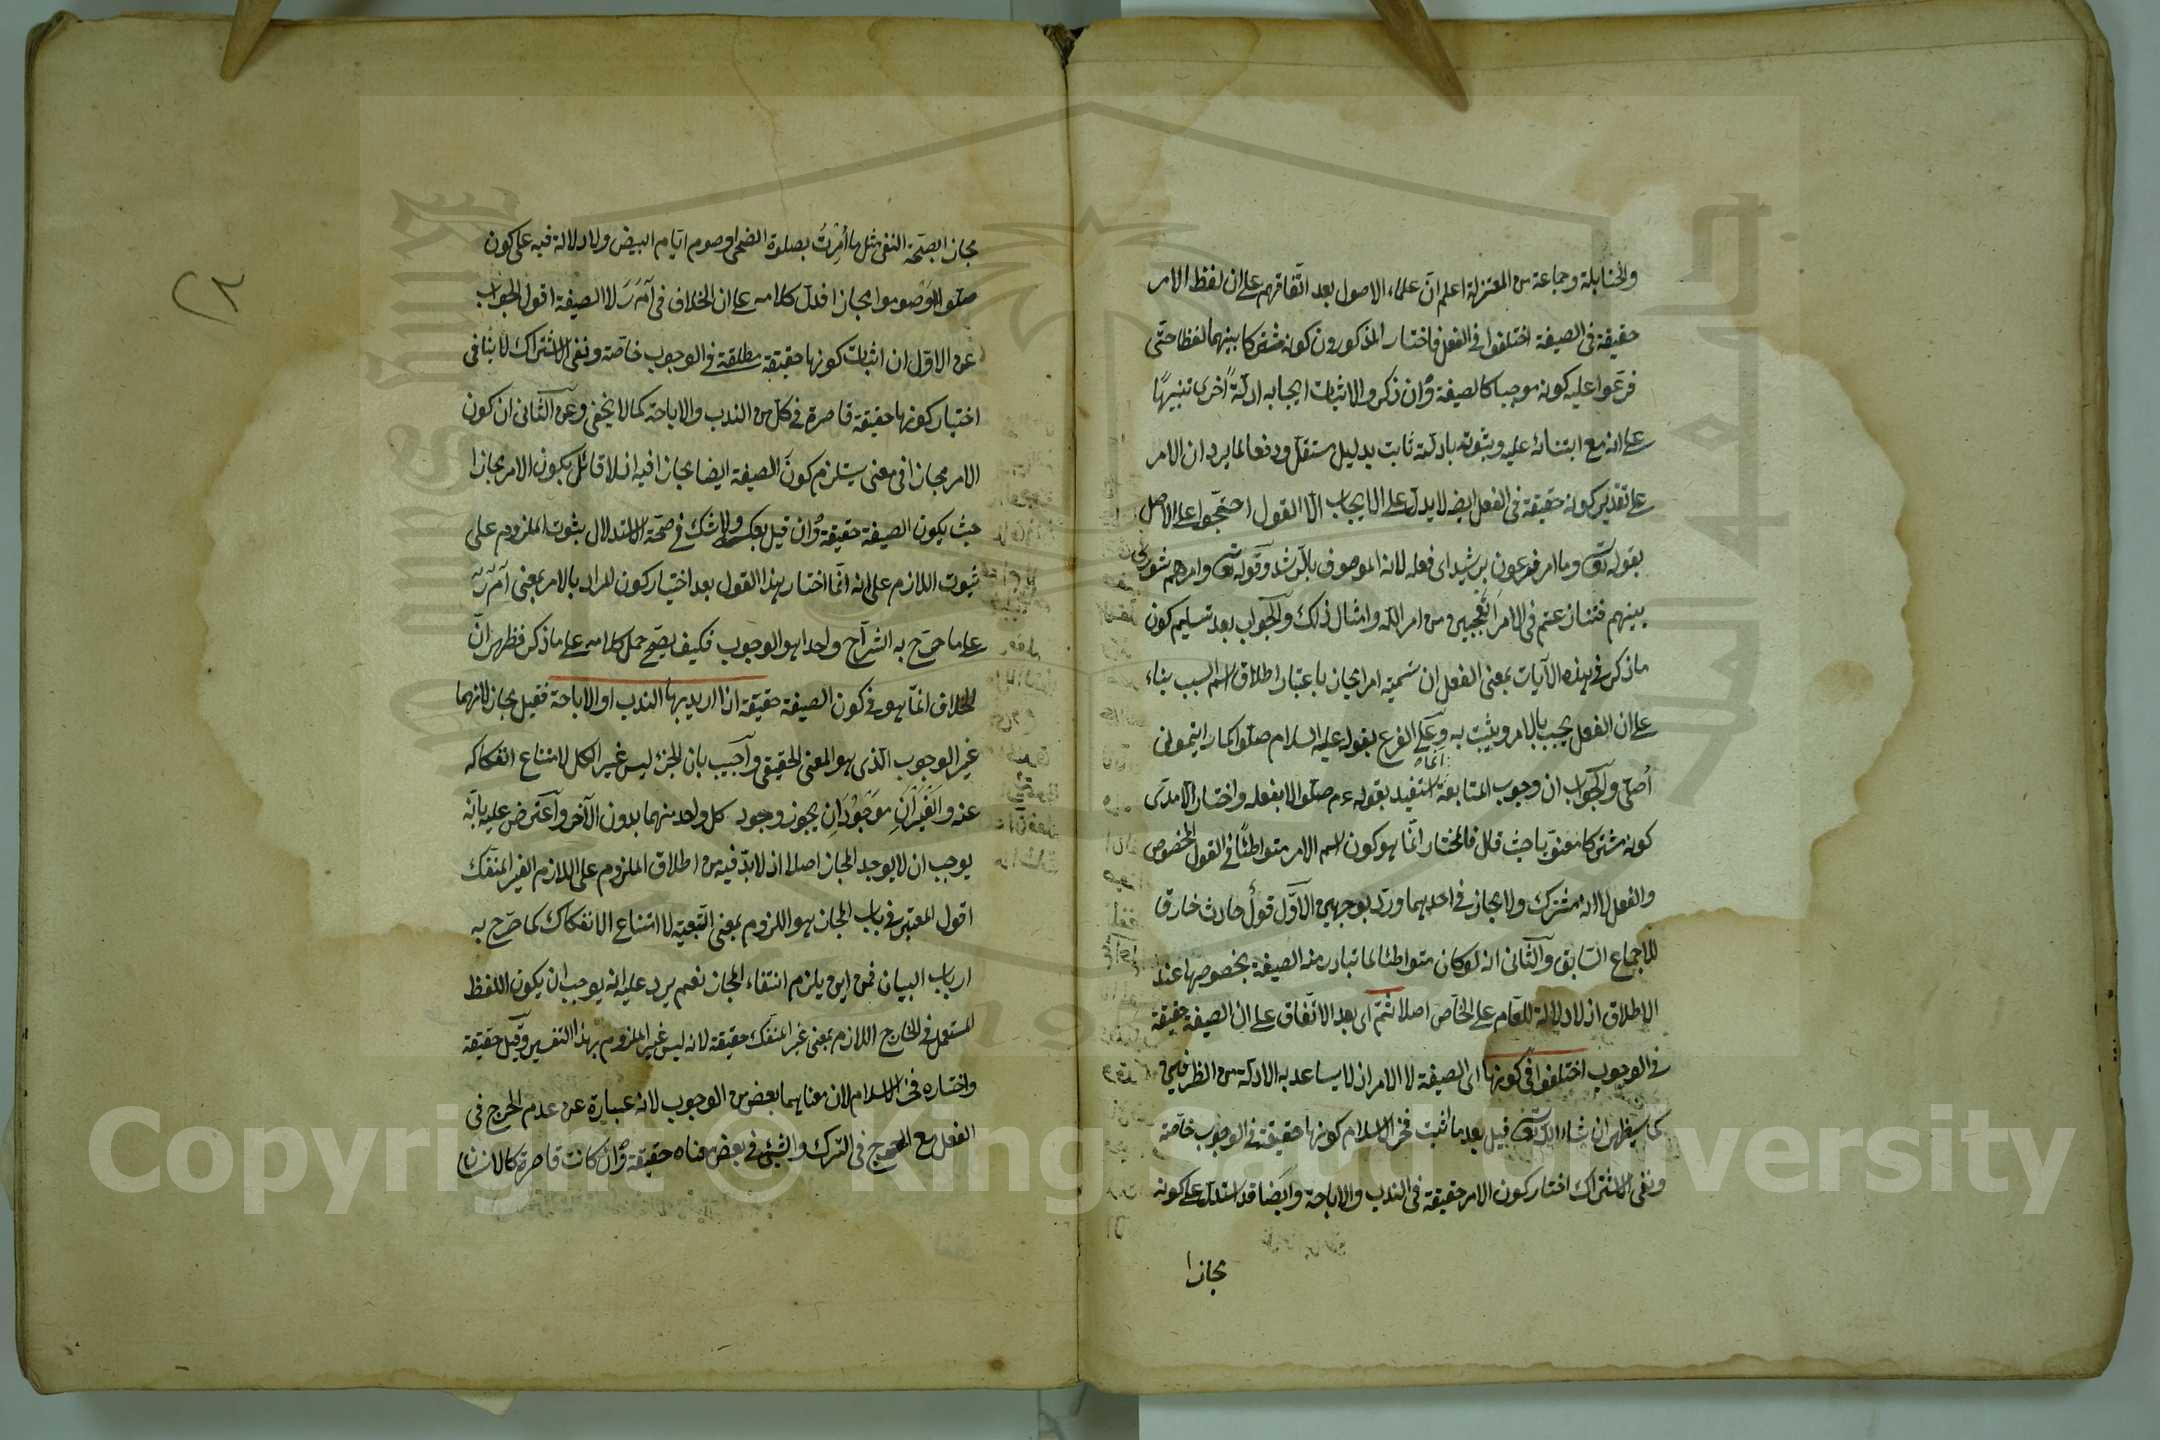 والحنابلة وجماعة من المعتزلة اعلم ان علماء الاصول بعد اتفاقهم على ان لفظ الامر
حقيقة في الصيغة اختلفوا في الفعل فاختار المذكورون كونه مشتركا بينهما لفظا حتى
فرعوا عليه كونه موجبا كالصيغة وان ذكروا لاثبات ايجابه ادلة اخرى تنبيها
على انه مع ابتنائه عليه وثبوته بادلته ثابت بدليل مستقل ودفعا لما يرد ان الامر
على تقدير كونه حقيقة في الفعل ايضا لا يدل على الايجاب الا القول احتجوا على الاصل
بقوله تعالى وما امر فرعون برشيد اي فعله لانه الموصوف بالرشد وقوله تعالى وامرهم شورى
بينهم فتنازعتم في الامر اتعجبين من امر الله وامثال ذلك والجواب بعد تسليم كون
ما ذكر في هذه الآيات بمعنى الفعل ان تسميته امرا مجاز باعتبار اطلاق اسم السبب بناء
على ان الفعل يجب بالامر ويثبت به وعلى الفرع بقوله عليه السلام صلوا كما رايتموني
اصلي والجواب ان وجوب المتابعة انما استفيد بقوله عم صلوا لا بفعله واختار الآمدي
كونه مشتركا معنويا حيث قال فالمختار انما هو كون اسم الامر متواطئا في القول المخصوص
والفعل لا انه مشترك ولا مجاز في احدهما ورد بوجهين الاول قول حادث خارق
للاجماع السابق والثاني انه لو كان متواطئا لما تبادر منه الصيغة بخصوصها عند
الاطلاق اذ لا دلالة للعام على الخاص اصلا ثم اي بعد الاتفاق على ان الصيغة حقيقة
في الوجوب اختلفوا في كونها اي الصيغة لا الامر اذ لا يساعد به الادلة من الطرفين
كما سيظهر ان شاء الله تعالى قيل بعد ما اثبت فخر الاسلام كونها حقيقة في الوجوب خاصة
ونفى الاشتراك اختار كون الامر حقيقة في الندب والاباحة وايضا قد استدل على كونه
مجازا
٢٨
مجازا بصحة النفي مثل ما أمرت بصلوة الضحى او صوم ايام البيض ولا دلالة فيه على كون
صلوا او صوموا مجازا فدل كلامه على ان الخلاف في أمر لا الصيغة اقول الجواب
عن الاول ان اثبات كونها حقيقة مطلقة في الوجوب خاصة ونفي الاشتراك لا ينافي
اختيار كونها حقيقة قاصرة في كل من الندب والاباحة كما لا يخفى وعن الثاني ان كون
الامر مجازا في معنى يستلزم كون الصيغة ايضا مجازا فيه اذ لا قائل بكون الامر مجازا
حيث يكون الصيغة حقيقة وان قيل بعكسه ولا شك في صحة الاستدلال بثبوت الملزوم على
ثبوت اللازم على انه انما اختار هذا القول بعد اختيار كون المراد بالامر بمعنى أمر
على ما صرح به الشراح واحدا هو الوجوب فكيف يصح حمل كلامه على ما ذكر فظهر ان
الخلاف انما هو في كون الصيغة حقيقة اذا اريد بها الندب او الاباحة فقيل مجاز لانهما
غير الوجوب الذي هو المعنى الحقيقي واجيب بان الجزء ليس غير الكل لامتناع انفكاكه
عنه والغيران موجودان يجوز وجود كل واحد منهما بدون الآخر واعترض عليه بانه
يوجب ان لا يوجد المجاز اصلا اذ لا بد فيه من اطلاق الملزوم على اللازم الغير المنفك
اقول المعتبر في باب المجاز هو اللزوم بمعنى التبعية لا امتناع الانفكاك كما صرح به
ارباب البيان فمن اين يلزم انتفاء المجاز نعم يرد عليه انه يوجب ان يكون اللفظ
المستعمل في الخارج اللازم بمعنى غير المنفك حقيقة لانه ليس غير الملزوم بهذا التفسير وقيل حقيقة
واختاره فخر الاسلام لان معناهما بعض من الوجوب لانه عبارة عن عدم الحرج في
الفعل مع الحرج في الترك والشيء في بعض معناه حقيقة وان كانت قاصرة كالانسان
Copyright © King Saud University